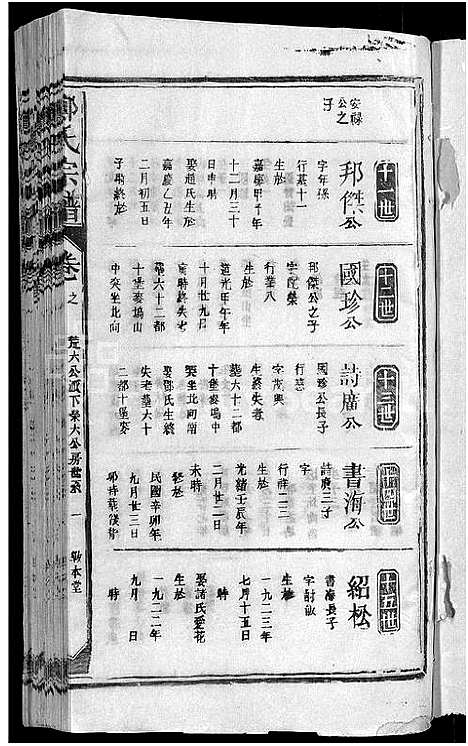 安祿
公之
子
十一世
邦傑公
字年孫
行慕十一
生於
嘉慶甲子年
十二月三十
日申時
娶趙氏生於
嘉慶乙丑年
二月初五日
子時終於
十二世
國珍公
邦傑公之子
行業八
生於
道光甲午年
十月廿九日
亥時終失考
墓六十二都
十堡麥塢山
中央坐北向
十三世
詩廣公
國珍公長子
行懋
字期興
生終失考
墓六十二都
十堡麥塢中
央坐北向南
娶鄧氏生終
失考墓六十
二都十堡麥
十四世
書海公
詩廣三子
字
行祥二三
生於
光緒壬辰年
二月廿二日
未時
終於
民國辛卯年
九月廿三日
卯時墓後背
十五世
紹松
書海長子
字
生於
一九二三年
七月十五日
時
娶諸氏愛花
生於
一九二二年
九月 日
時
鄭氏宗譜
卷之
荒六公派下榮六公房世系
一
敦本堂